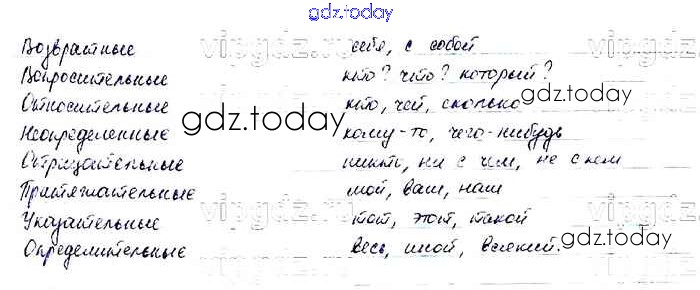 gdz.today
Возвратные себя, с собой
Вопросительные кто? что? который?
Относительные кто, чей, сколько
Неопределенные кому-то, чего-нибудь
Отрицательные никто, ни с чем, не с кем
Притяжательные мой, ваш, наш
Указательные тот, этот, такой
Определительные весь, иной, всякий.
vipgdz.ru
gdz.today
gdz.today
gdz.today